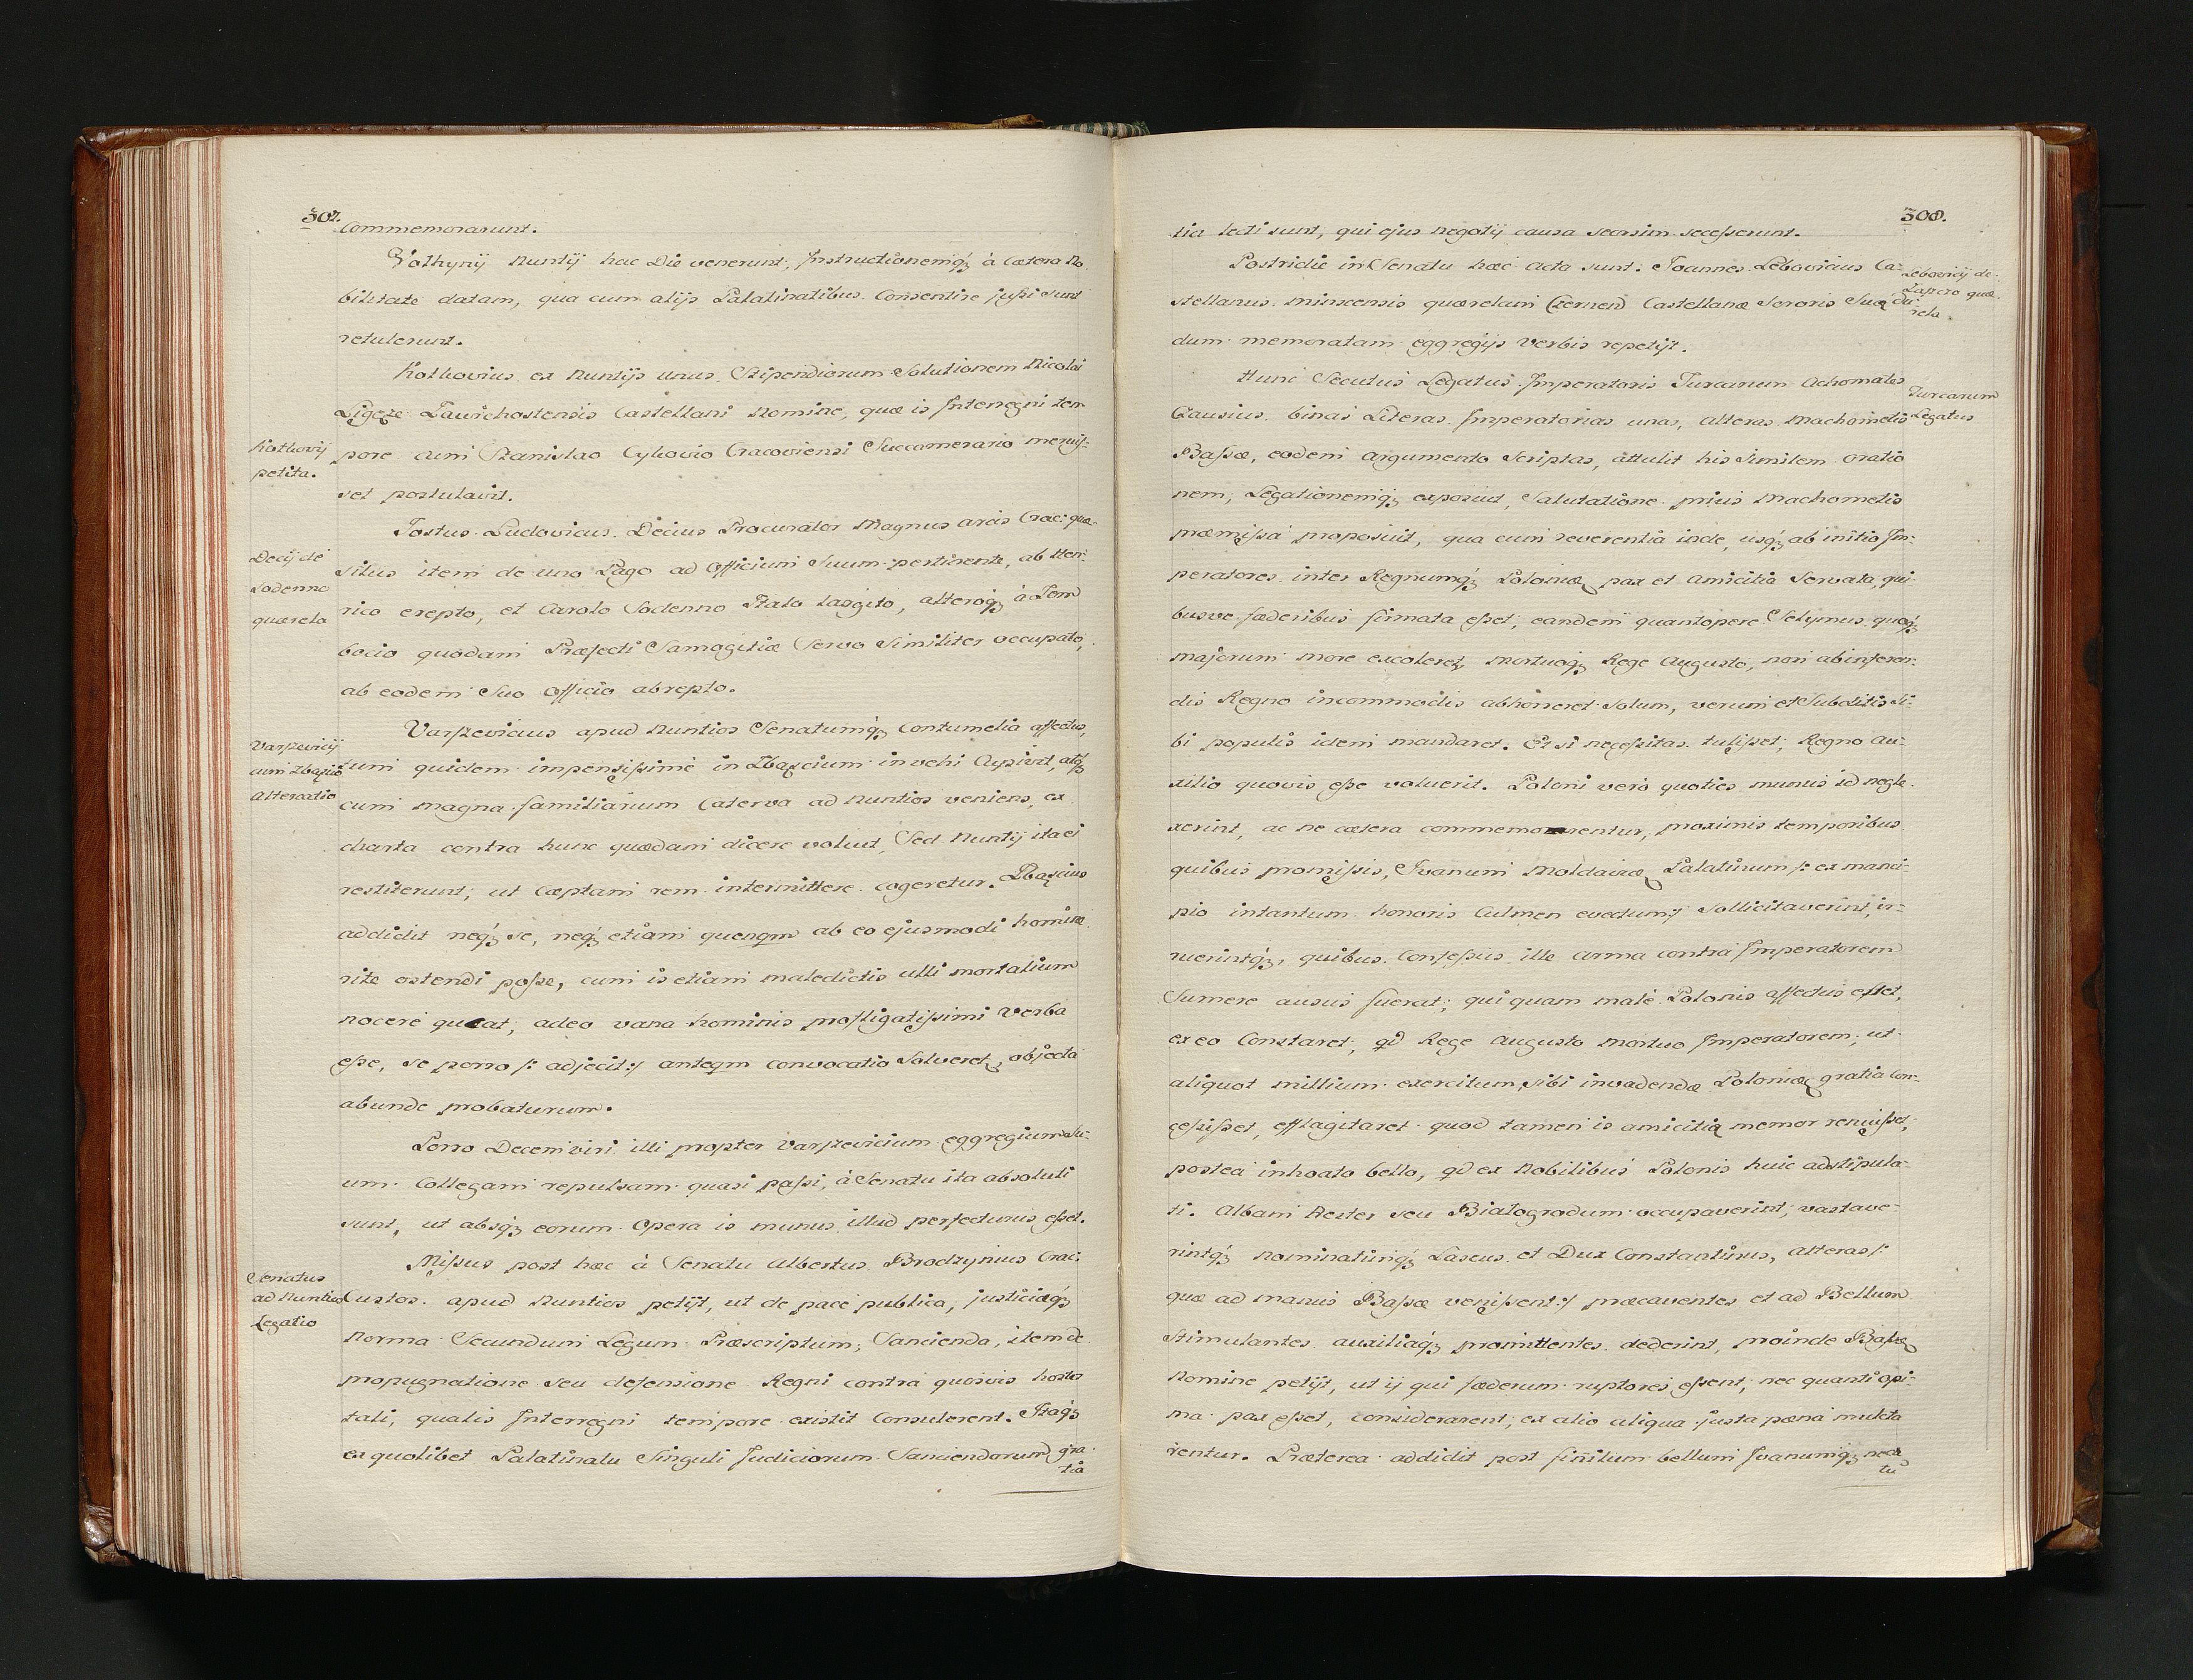 307.
Commemorarunt.
Volhynij Nuntij hac Die venerunt, Instructionemq́ꝫ à Cætera No-
bilitate datam, qua cum alijs Palatinatibus Consentire jussi sunt
retulerunt.
Kothovius ex Nuntijs unus, Stipendiorum Solutionem Nicolai
Ligęze Zawichostensis Castellani Nomine, quæ is Interregni tem-
Kothovij
petita.
pore cum Stanislao Cyhovio Cracoviensi Succamerario meruis-
set postulavit.
Jostus Ludovicus Decius Procurator Magnus arcis Crac: quæ-
Decij de
Sodenno
quærela
situs item de uno Pago ad Officium Suum pertinente, ab Hen-
rico erepto, et Carolo Sodenno Italo largito, alteroq́ꝫ à Jem
bocio quodam Præfecti Samogitiæ Servo Similiter occupato,
ab eodem Suo Officio abrepto.
Varszevicius apud Nuntios Senatumq́ꝫ Contumelia affectus,
Varszevicij
cum Zbązio
Altercatio
tum quidem impensissime in Zbąscium invehi Cupivit, atq́ꝫ
cum magna familiarium Caterva ad Nuntios veniens, ex
charta contra hunc quædam dicere voluit, Sed Nuntij ita ei
restiterunt, ut Cæptam rem intermittere cogeretur. Zbąscius
addidit neq́ꝫ se, neq́ꝫ etiam quenqm ab eo ejusmodi homine
rite ostendi posse, cum is etiam maledictis ulli mortalium
nocere queat, adeo vana hominis profligatissimi verba
esse, se porro /: adjecit :/ anteqm convocatio Solveret, objecta
abunde probaturum.
Porro Decemviri illi propter Varszevicium eggregium su-
um Collegam repulsam quasi passi, à Senatu ita absoluti
sunt, ut absq́ꝫ eorum Opera is munus illud perfecturus esset.
Missus post hæc à Senatu Albertus Brodzynius Crac:
Senatus
ad Nuntios
Legatio
Custos apud Nuntios petijt, ut de pace publica, justiciáq́ꝫ
Norma Secundum Legum Præscriptum, Sancienda, item de
propugnatione seu defensione Regni contra quosvis hostes
tali, qualis Interregni tempore existit Consulerent. Itaq́ꝫ
ex quolibet Palatinatu Singuli Judiciorum Sanciendorum gra-
tiâ
308.
tia lecti sunt, qui ejus negotij causa seorsim secesserunt.
Postridie in Senatu hæc acta sunt. Joannes Lebovicius Ca-
Lebovicij de
Zapero quæ-
rela
stellanus Minscensis quærelam Czernen Castellanæ Sororis Suæ du-
dum memoratam eggregijs verbis repetijt.
Huni Secutus Legatus Imperatoris Turcarum Achomates
Turcarum
Legatus
Czausius binas Literas Imperatorias unas, alteras Machometis
Bassæ, eodem argumento Scriptas, attulit his Similem oratio
nem, Legationemq́ꝫ exposuit, Salutatione prius Machometis
præmissa proposuit, qua cum reverentia inde, usq́ꝫ ab initio Im-
peratores inter Regnumq́ꝫ Poloniæ pax et amicitia Servata, qui-
busve fæderibus firmata esset; eandem quantopere Selymus quoq́ꝫ
majorum more excoleret, mortuoq́ꝫ Rege Augusto, non ab inferen-
dis Regno incommodis abhorreret Solum, verum et Subditis Si-
bi populis idem mandaret. Et si necessitas tulisset, Regno au-
xilio quovis esse voluerit. Poloni verò quoties munus id negle-
xerint, ac ne cætera commemorentur, proximis temporibus
quibus promissis, Ivanum Moldaviæ Palatinum /: ex manci-
pio intantum honoris Culmen evectum :/ Sollicitaverint, ir-
ruerintq́ꝫ, quibus Confessus ille arma contra Imperatorem
Sumere ausus fuerat; qui quam malè Polonis affectus esset,
ex eo Constaret, qd Rege Augusto mortuo Imperatorem, ut
aliquot millium exercitum, sibi invadendæ Poloniæ gratia Con-
cessisset, efflagitaret quod tamen is amicitiæ memor renuisset,
postea inhoato bello, qd ex Nobilibus Polonis huic adstipula-
ti. Albam Nester seu Biatogrodum occupaverint, vastave-
rintq́ꝫ Nominatimq́ꝫ Lascus et Dux Constantinus, Alteras /:
quæ ad manus Bassæ venissent :/ præcaventes et ad Bellum
Stimulantes auxiliaq́ꝫ promittentes dederint, proinde Bassæ
Nomine petijt, ut ij qui fæderum ruptores essent, nec quanti opi-
ma pax esset, considerarent, ex alio aliqua justa pæna mulcta
rentur. Præterea addidit post finitum bellum Ivanumq́ꝫ neca
tū